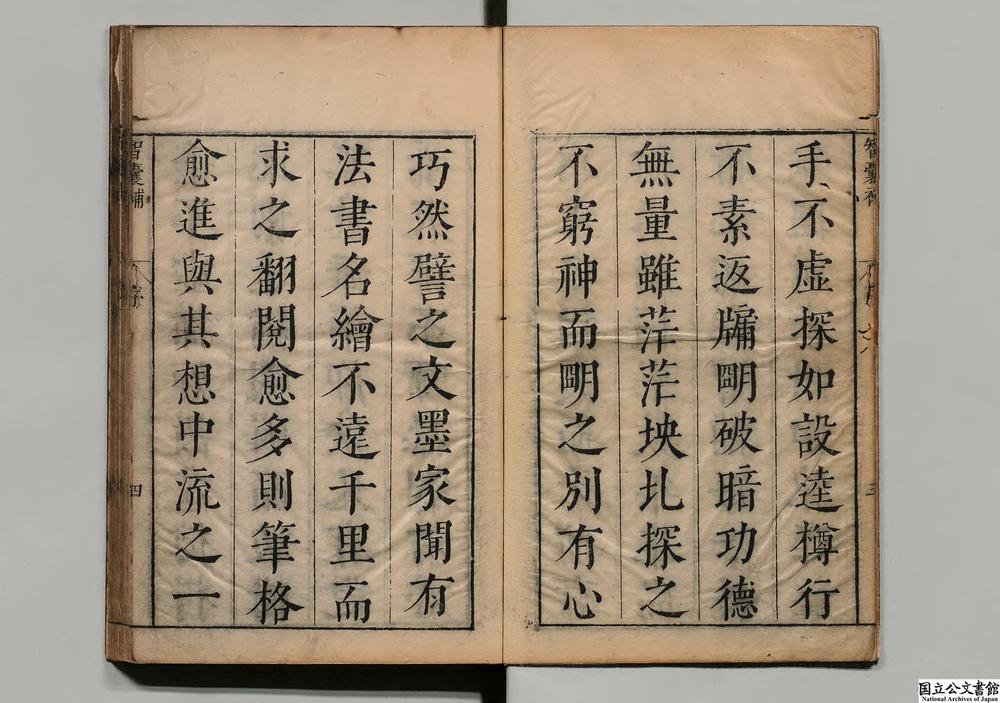 手不虛探如設逵樽行
不素返牖朙破暗功德
無量雖茫茫坱圠探之
不窮神而朙之別有心
巧然譬之文墨家聞有
法書名繪不遠千里而
求之翻閱愈多則筆格
愈進與其想中流之一
智囊補
序
三
智囊補
序
四
国立公文書館
National Archives of Japan